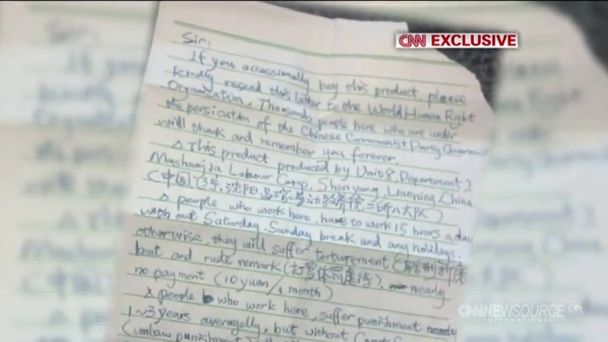 CNN EXCLUSIVE
Sir:
If you occassionally buy this product, please
kindly resend this letter to the World Human Right
Organization. Thousands people here who are under
the persicution of the Chinese Communist Party Government
will thank and remember you forever.
This product produced by Unit 8, Department 2
Mashanjia Labour Camp, Shenyang, Liaoning, China
(中国,辽宁,沈阳,马三家
people who work here, have to work 15 hours a day
with out Saturday, Sunday break and any holidays,
otherwise, they will suffer torturement (
beat and rude remark (打骂体罚虐待) nearly
no payment (10 yuan/1 month)
people who work here, suffer punishment nearly
1~3 years averagelly, but without Court
(unlaw punishment
CNN NEWSOURCE
INTERNATIONAL